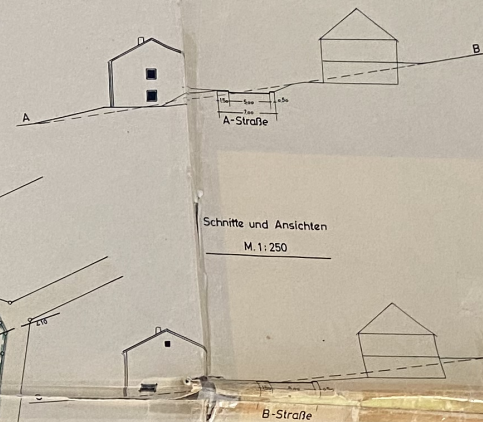 B
A
1.50 5,00 0,50
7,00
A-Straße
Schnitte und Ansichten
M. 1:250
B-Straße